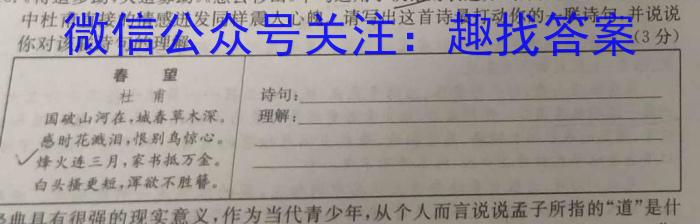 中杜甫直接的情感迸发同样震人心魄。请写出这首诗最打动你的一联诗句,并说说
你对该联诗句的理解。(3分)
微信公众号关注:趣找答案
春 望
杜 甫
国破山河在,城春草木深。
感时花溅泪,恨别鸟惊心。
烽火连三月,家书抵万金。
白头搔更短,浑欲不胜簪。
诗句:
理解:
典具有很强的现实意义,作为当代青少年,从个人而言说说孟子所指的“道”是什